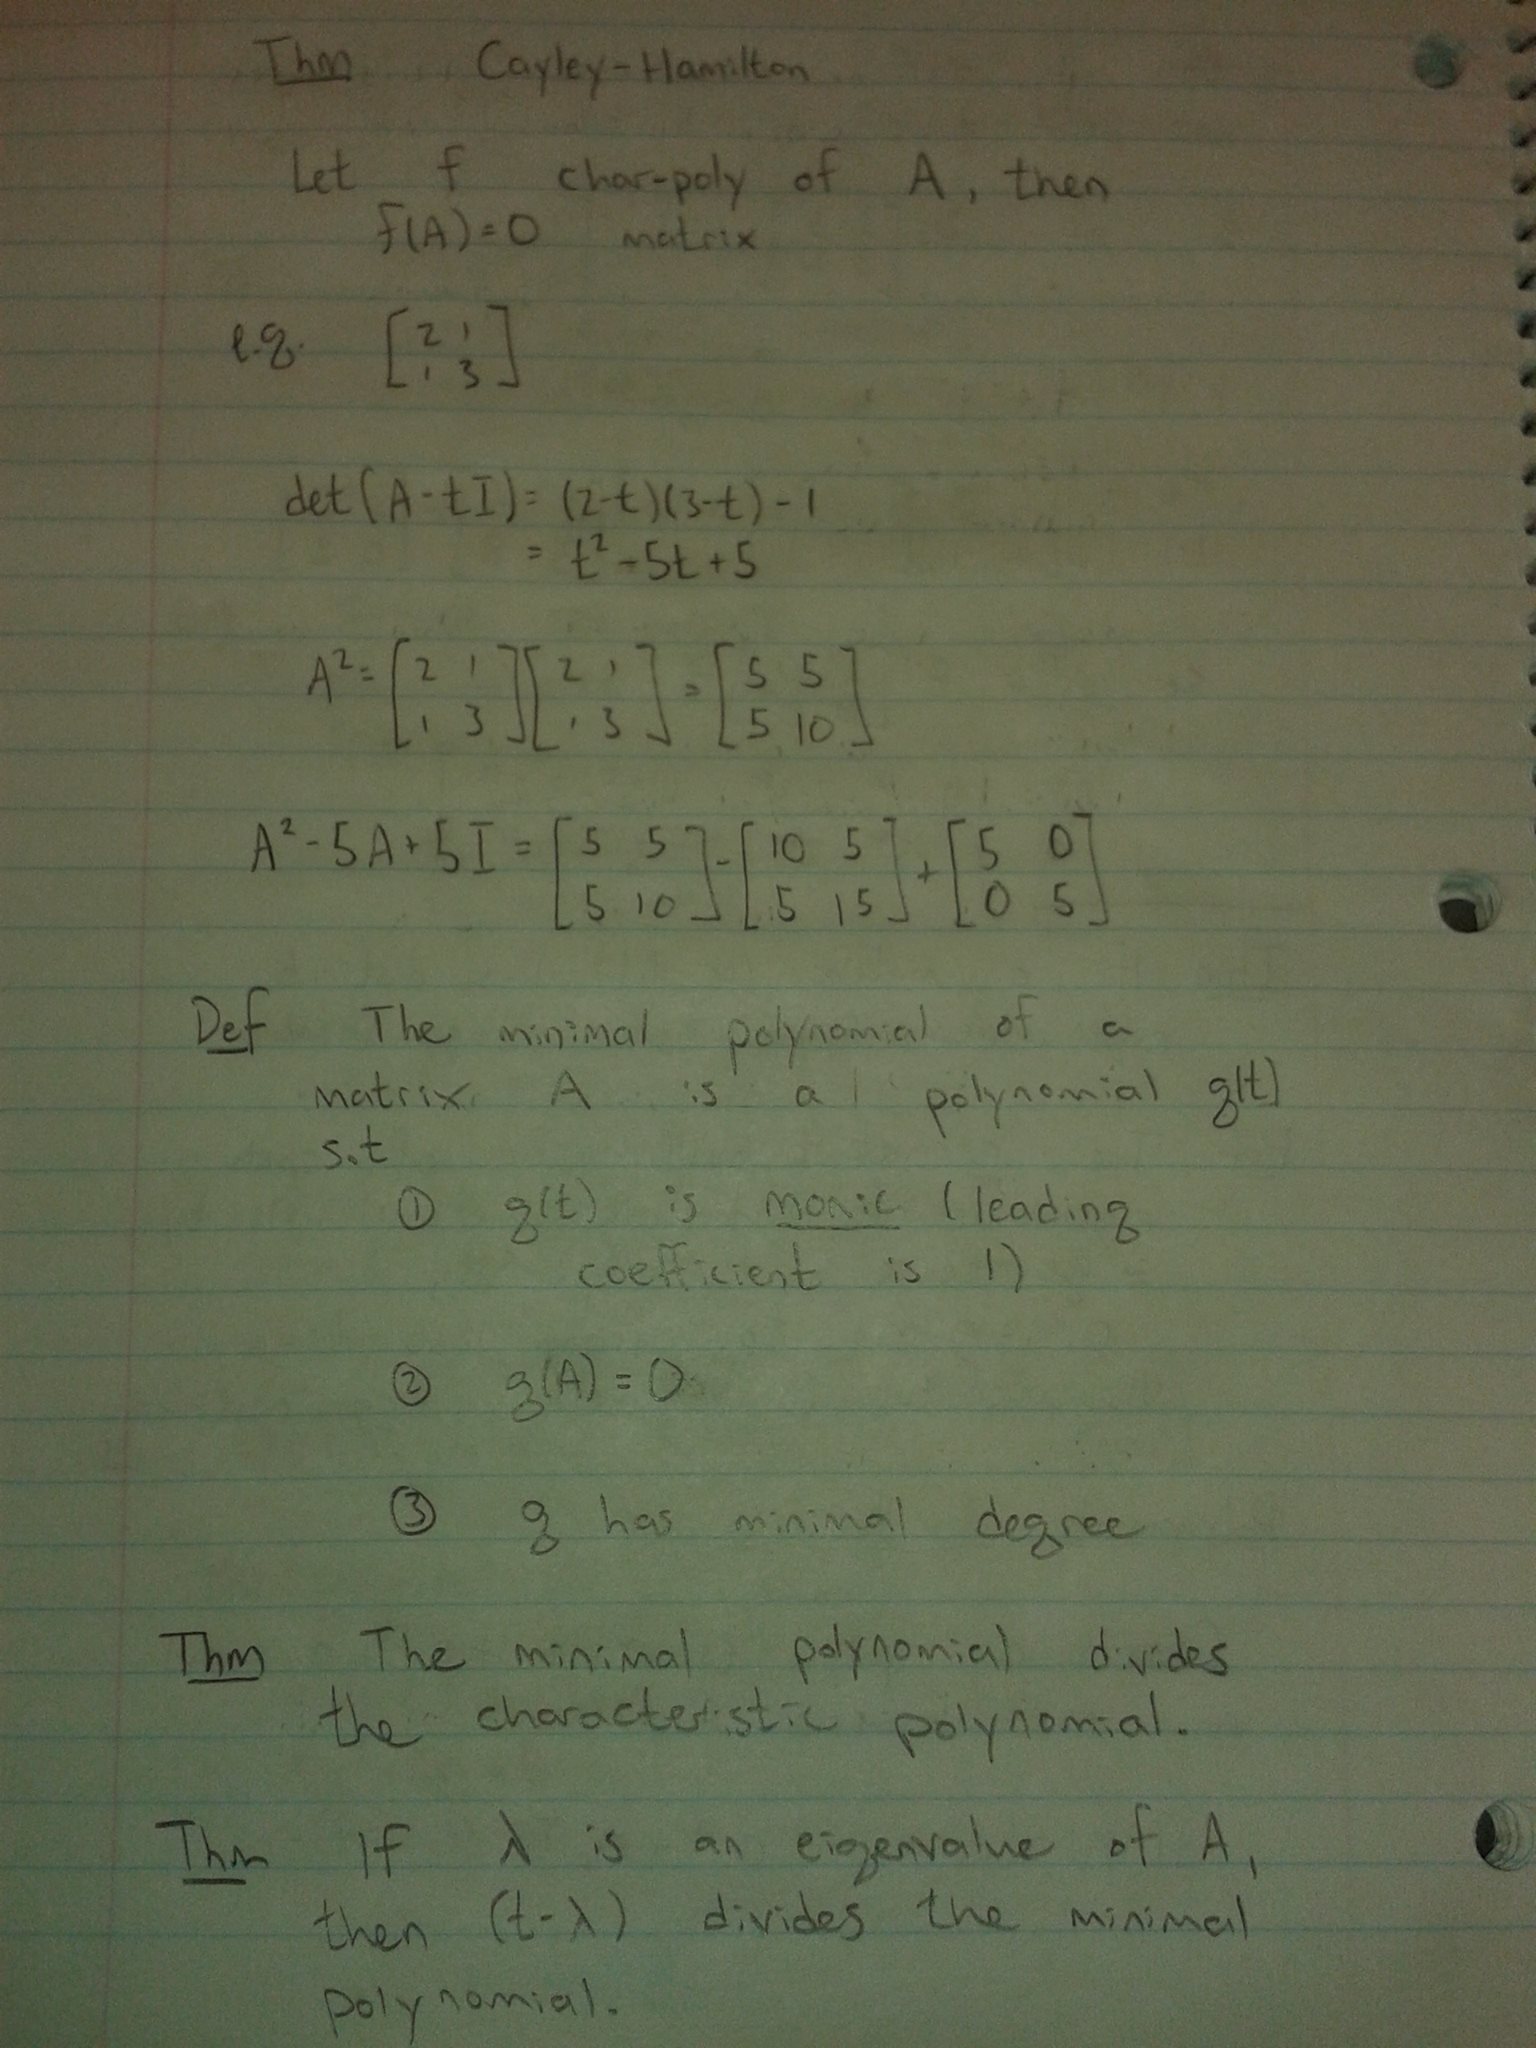 Thm Cayley-Hamilton
Let f char-poly of A, then
f(A)=0 matrix
e.g. [2 1
1 3]
det(A-tI)= (2-t)(3-t)-1
= t²-5t+5
A²= [2 1
1 3] [2 1
1 3] = [5 5
5 10]
A²-5A+5I = [5 5
5 10] - [10 5
5 15] + [5 0
0 5]
Def The minimal polynomial of a
matrix A is a polynomial g(t)
s.t
① g(t) is monic (leading
coefficient is 1)
② g(A)=0
③ g has minimal degree
Thm The minimal polynomial divides
the characteristic polynomial.
Thm If λ is an eigenvalue of A,
then (t-λ) divides the minimal
polynomial.